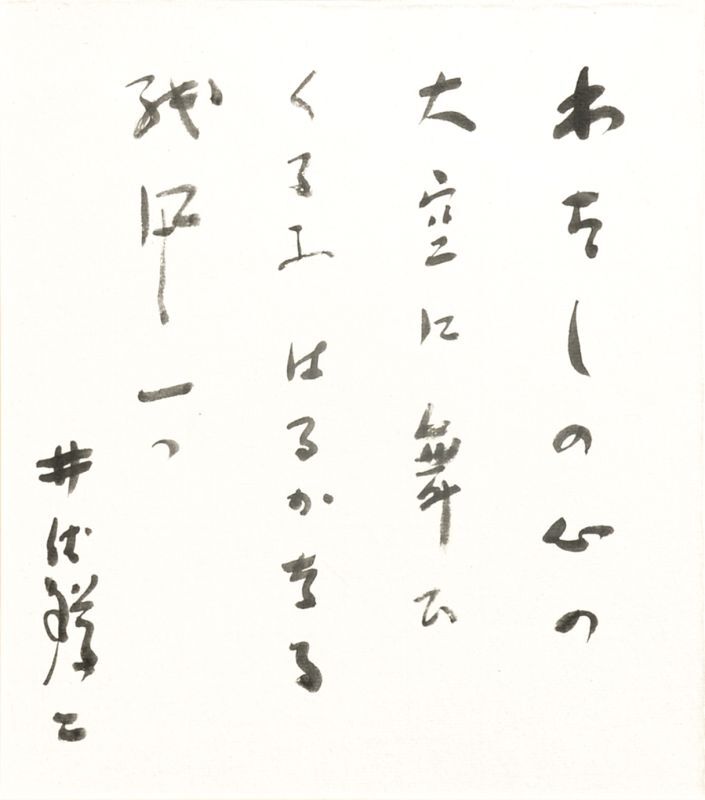 わたしの心の
大空に舞ひ
くるふはるかなる
紙凧一つ
井伏鱒二